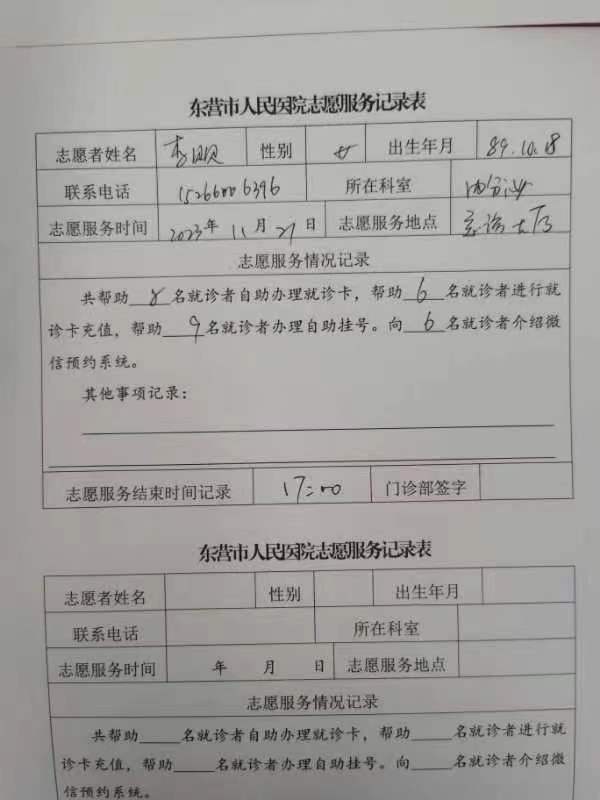 东营市人民医院志愿服务记录表
志愿者姓名 李 性别 女 出生年月 89.10.18
联系电话 所在科室 内分泌
志愿服务时间 2023年 11月 27日 志愿服务地点 门诊大厅
志愿服务情况记录
共帮助 8 名就诊者自助办理就诊卡，帮助 6 名就诊者进行就
诊卡充值，帮助 9 名就诊者办理自助挂号。向 6 名就诊者介绍微
信预约系统。
其他事项记录：
志愿服务结束时间记录 17:00 门诊部签字
东营市人民医院志愿服务记录表
志愿者姓名 性别 出生年月
联系电话 所在科室
志愿服务时间 年 月 日 志愿服务地点
志愿服务情况记录
共帮助____名就诊者自助办理就诊卡，帮助____名就诊者进行就
诊卡充值，帮助____名就诊者办理自助挂号。向____名就诊者介绍微
信预约系统。